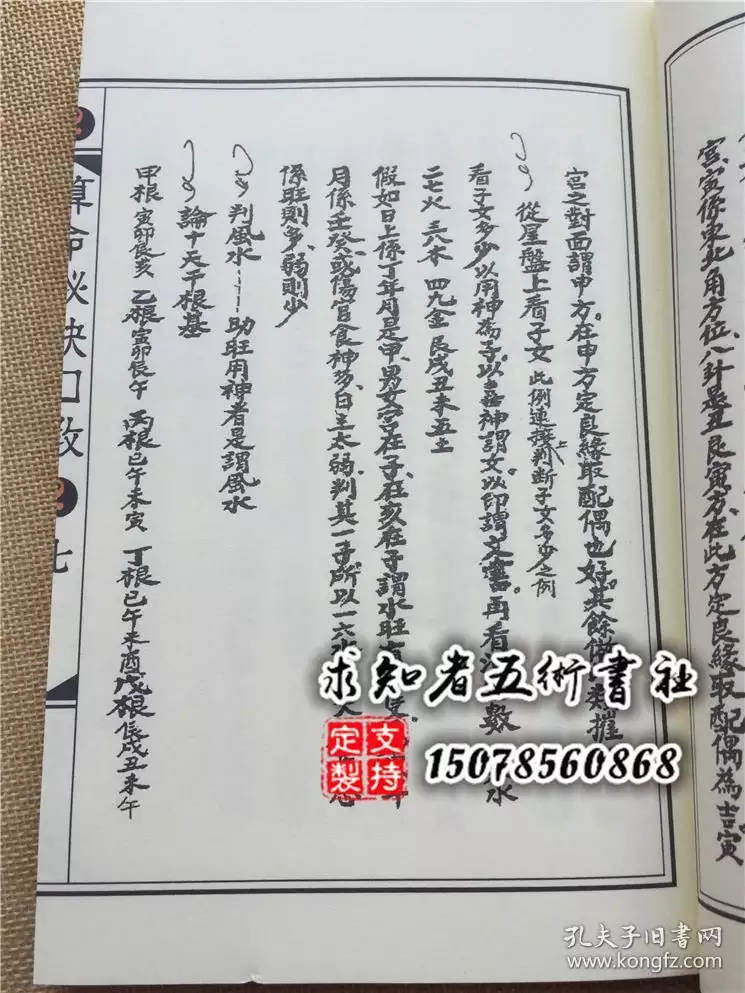 宫寅係東北角方位八計是丑艮寅方在此方定良緣取配偶為吉寅
宫之對面謂申方。在申方定良緣取配偶也好。其餘
數推
從星盤上看子女 此例連接上判断子女多少之例
看子女多少以用神為子。以喜神謂女以印謂文書。再看
數
水
二七火 三八木 四九金 艮戌丑未五土
假如日上係丁年月是甲、男女宫在子、在亥在子謂水旺
月係壬癸、或傷官食神多、日主太弱、判其一子所以一六水
係旺則多、弱則少
判風水——助旺用神者是謂風水
論十天干根基
甲根 寅卯辰亥 乙根寅卯辰午 丙根巳午未寅 丁根巳午未酉 戊根辰戌丑未午
算命秘訣口教
七
求知者五術書社
支持定製
15078560868
孔夫子旧書网
www.kongfz.com